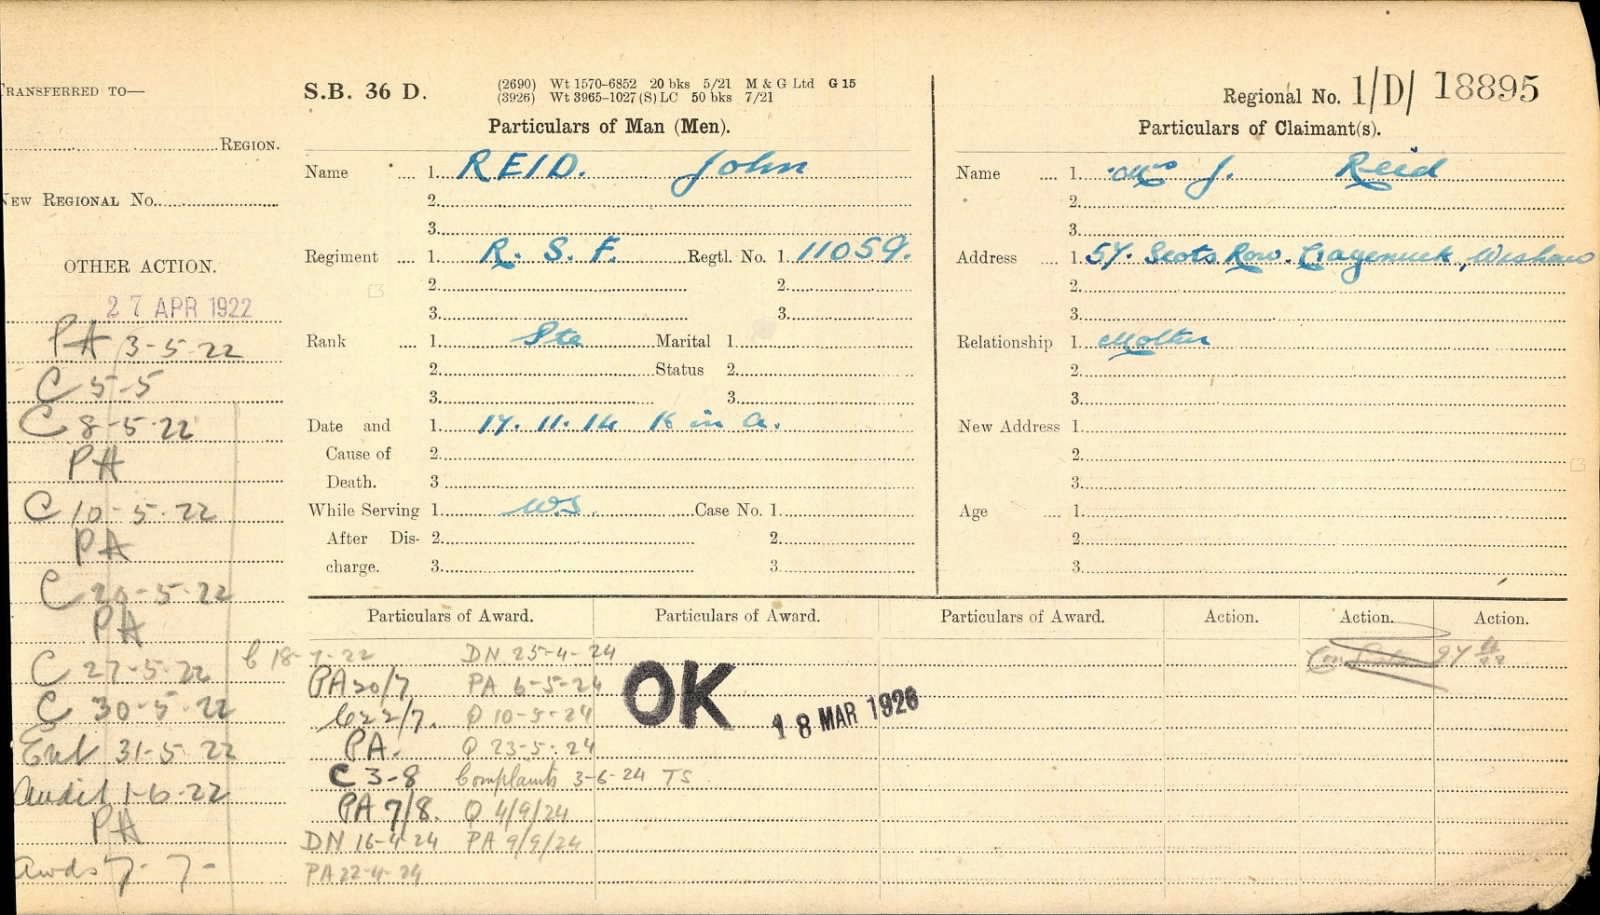 TRANSFERRED TO—
REGION.
NEW REGIONAL No.
OTHER ACTION.
27 APR 1922
PA 3-5-22
C 5-5
C 8-5-22
PA
C 10-5-22
PA
C 5-22
PA
C 27-5-22
C 30-5-22
Ent 31-5-22
Audit 1-6-22
PA
Awds 7-7-
S.B. 36 D.
(2690) Wt 1570–6852 20 bks 5/21 M & G Ltd G 15
(3926) Wt 3965–1027 (S) LC 50 bks 7/21
Particulars of Man (Men).
Name 1. REID. John
2.
3.
Regiment 1. R. S. F. Regtl. No. 1 11059.
2. 2.
3. 3.
Rank 1. Pte Marital 1.
2. Status 2.
3. 3.
Date and 1. 17.11.14 K in A.
Cause of 2.
Death. 3
While Serving 1. W.S. Case No. 1.
After Dis- 2. 2.
charge. 3. 3.
Regional No. 1/D/ 18895
Particulars of Claimant(s).
Name 1. Mrs J. Reid
2.
3.
Address 1. 57. Scots Row. Wishaw
2.
3.
Relationship 1. Mother
2.
3.
New Address 1.
2.
3.
Age 1.
2.
3.
Particulars of Award. Particulars of Award. Particulars of Award. Action. Action. Action.
C 18-7-22 DN 25-4-24
PA 20/7 PA 6-5-24
C 22/7. Q 10-5-24
PA. Q 23-5-24
C 3-8 Complaints 3-6-24 TS
PA 7/8. Q 4/9/24
DN 16-4-24 PA 9/9/24
PA 22-4-24
OK
18 MAR 1926